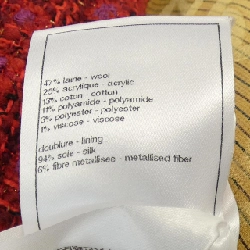 47% laine - wool
25% acrylique - acrylic
13% coton - cotton
11% polyamide - polyamide
3% polyester - polyester
1% viscose - viscose
doublure - lining
94% soie - silk
6% fibre metallisee - metallised fiber